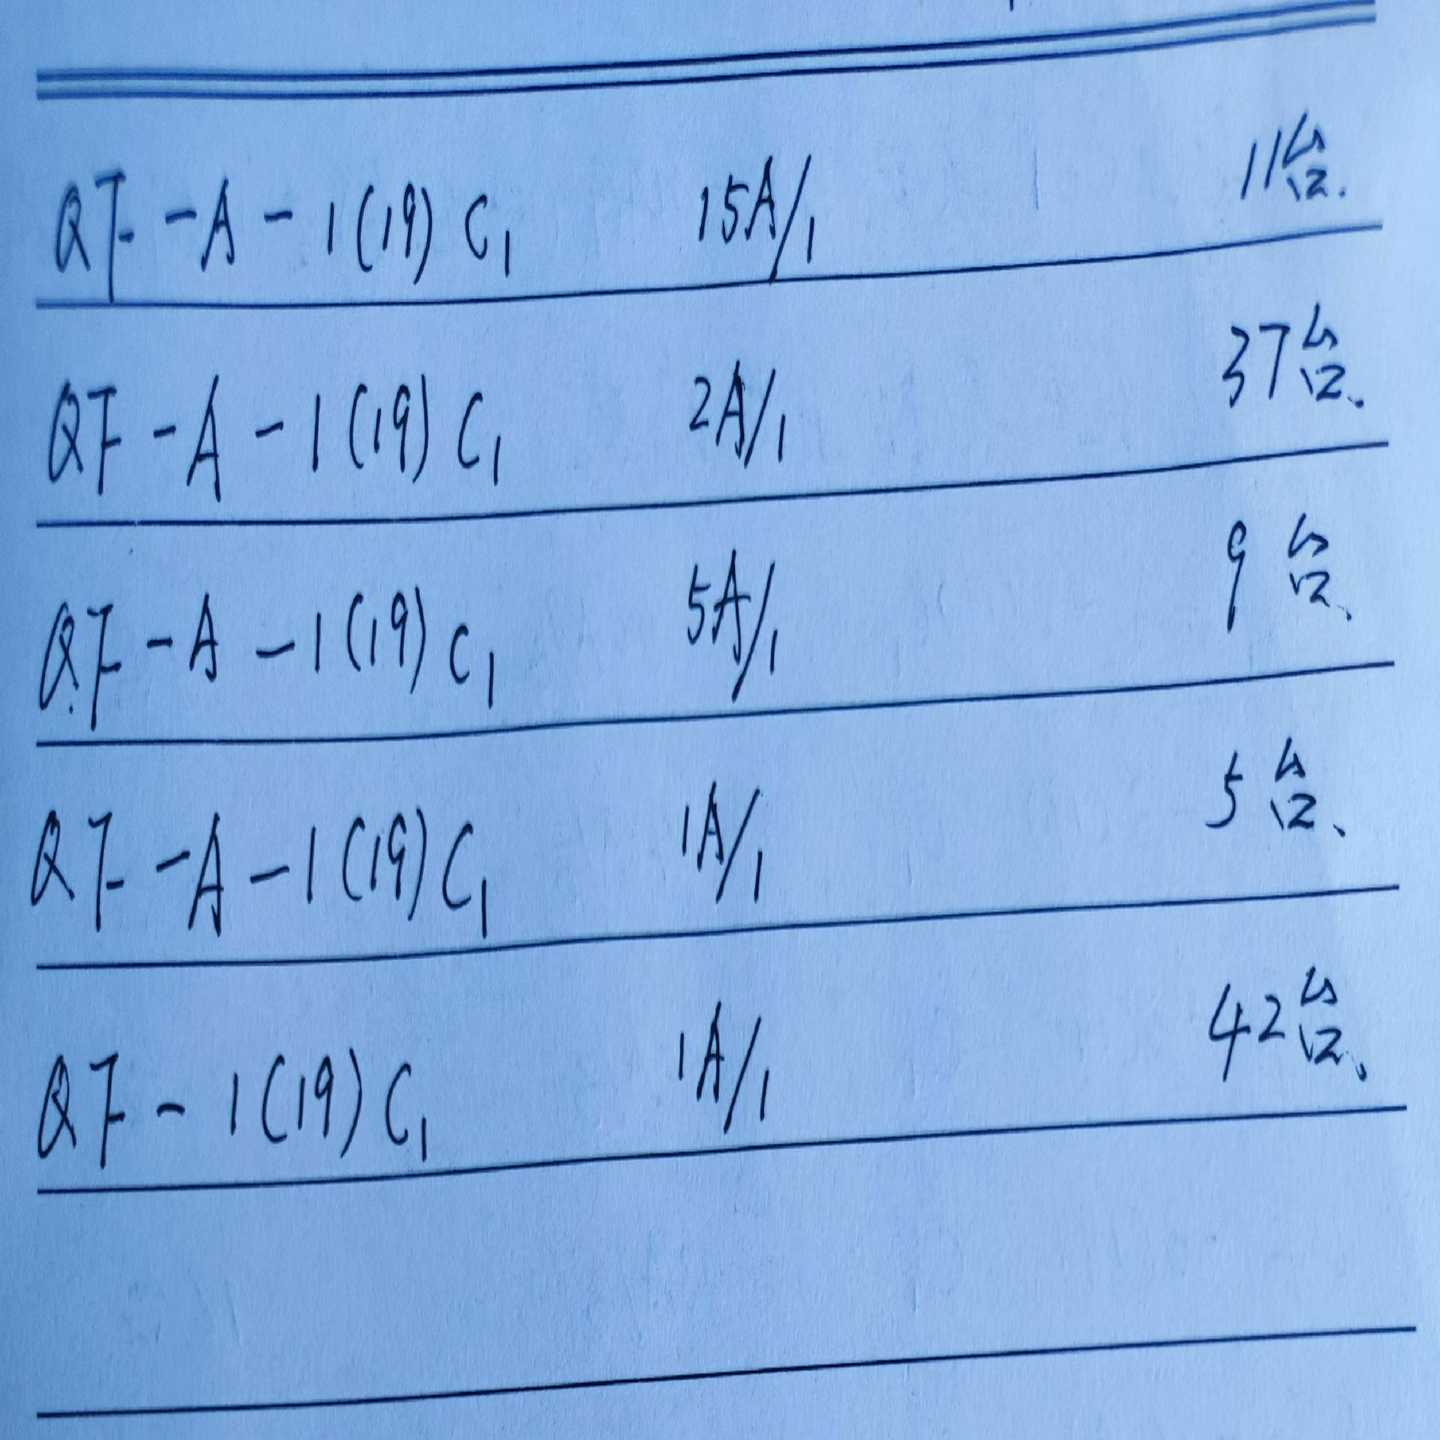 QF-A-1(19)C1 15A/1 11台.
QF-A-1(19)C1 2A/1 37台.
QF-A-1(19)C1 5A/1 9台、
QF-A-1(19)C1 1A/1 5台、
QF-1(19)C1 1A/1 42台、